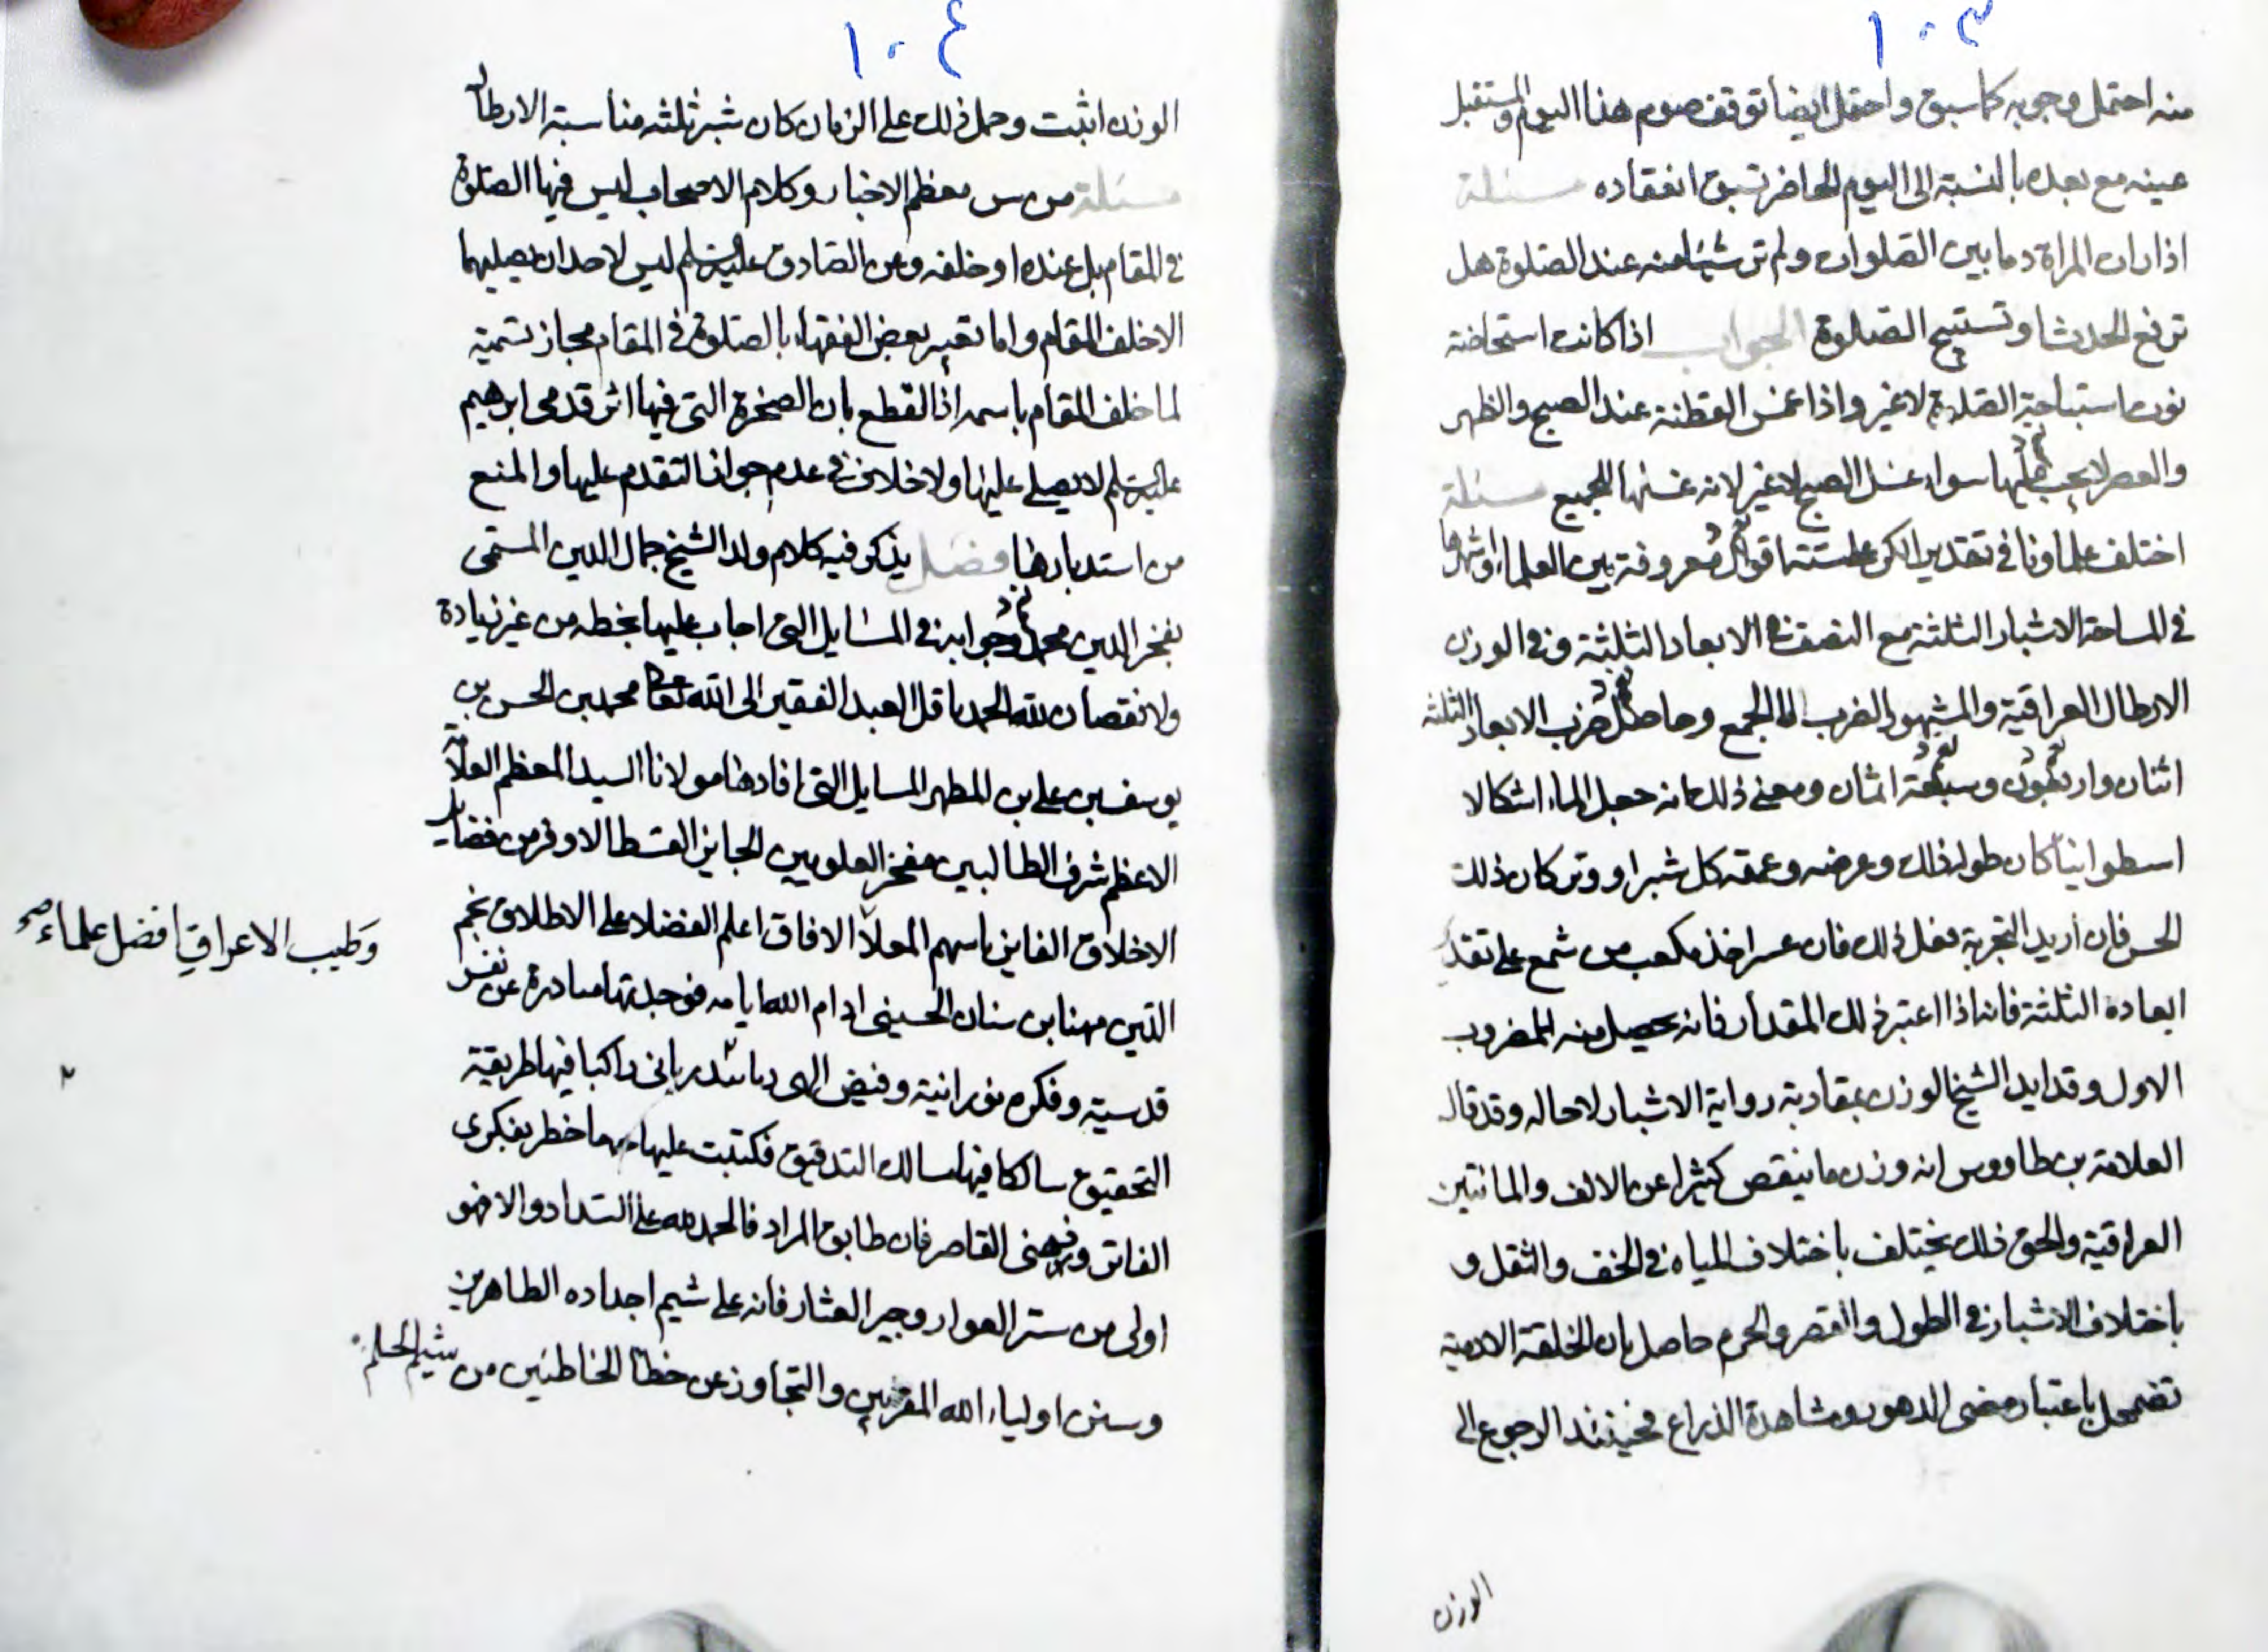 ١٠٣
منه احتمل وجوبه كما سبق واحتمل ايضا توقف صوم هذا اليوم والمستقبل
عينه مع بعده بالنسبة الى اليوم الحاضر تسبق انعقاده مسئلة
اذا رات المراة دما بين الصلوات ولم تر شيئا منه عند الصلوة هل
ترفع الحدث او تستبيح الصلوة الجواب اذا كانت استحاضة
نوت استباحة الصلوة لا غير واذا غمس القطنة عند الصبح والظهر
والعصر لا يجب عليها سواء غسل الصبح لا غير لانه غسلها للجميع مسئلة
اختلف علماونا في تقدير الكر على ستة اقوال معروفة بين العلماء واشهرها
في المساحة الاشبار الثلثة مع النصف في الابعاد الثلثة وفي الوزن
الارطال العراقية والمشهور الضرب لا الجمع وحاصل ضرب الابعاد الثلثة
اثنان واربعون وسبعة اثمان ومعنى ذلك انه جعل الماء اشكالا
اسطوانيا كان طول ذلك وعرضه وعمقه كل شبرا ووتر كان ذلك
الحس فان اريد التجربة فعل ذلك فان عسر اخذ مكعب من شمع على تقدير
ابعاده الثلثة فانه اذا اعتبر ذلك المقدار فانه يحصل منه المضروب
الاول وقد ايد الشيخ الوزن بمقاربة رواية الاشبار لا حاله وقد قال
العلامة بن طاووس انه وزن ما ينقص كثيرا عن الالف والمائتين
العراقية والحق ذلك يختلف باختلاف المياه في الخف والثقل و
باختلاف الاشبار في الطول والقصر والجرم حاصل بان الخلقة الادمية
تضمحل باعتبار مضى الدهور ومشاهدة الذراع فحينئذ الرجوع الى
الوزن
١٠٤
الوزن اثبت وحمل ذلك على الزمان كان شبر ثلثه مناسبة الارطال
مسئلة من س معظم الاخبار وكلام الاصحاب ليس فيها الصلوة
في المقام بل عنده او خلفه وعن الصادق عليه السلم ليس لاحد ان يصليهما
الا خلف المقام واما تعبير بعض الفقهاء بالصلوة في المقام مجاز تسمية
لما خلف المقام باسمه اذ القطع بان الصخرة التى فيها اثر قدمى ابرهيم
عليه السلم لا يصلى عليها ولا خلاف في عدم جواز التقدم عليها والمنع
من استدبارها فصل يذكر فيه كلام ولد الشيخ جمال الدين المسمى
بفخر الدين محمد وجوابه في المسايل التى اجاب عليها بخطه من غير زيادة
ولا نقصان لله الحمد قال العبد الفقير الى الله تعالى محمد بن الحسن بن
يوسف بن على بن المطهر المسايل التى افادها مولانا السيد المعظم العلامة
الاعظم شرف الطالبين مفخر العلويين الحايز القسط الاوفر من فضايل
الاخلاق الفايز باسهم المعلا الافاق اعلم الفضلاء على الاطلاق نجم
وطيب الاعراق افضل علماء صح
الدين مهنا بن سنان الحسينى ادام الله ايامه فوجدتها صادرة عن نفس
قدسية وفكره نورانية وفيض الهى ربانى راكبا فيها طريقة
التحقيق سالكا فيها مسالك التدقيق فكتبت عليها مهما خطر بفكرى
الفاتر وذهنى القاصر فان طابق المراد فالحمد لله على السداد والا فهو
اولى من ستر العوار وجبر العثار فانه على شيم اجداده الطاهرين
وسنن اولياء الله المقربين والتجاوز عن خطأ الخاطئين من شيم الحلم